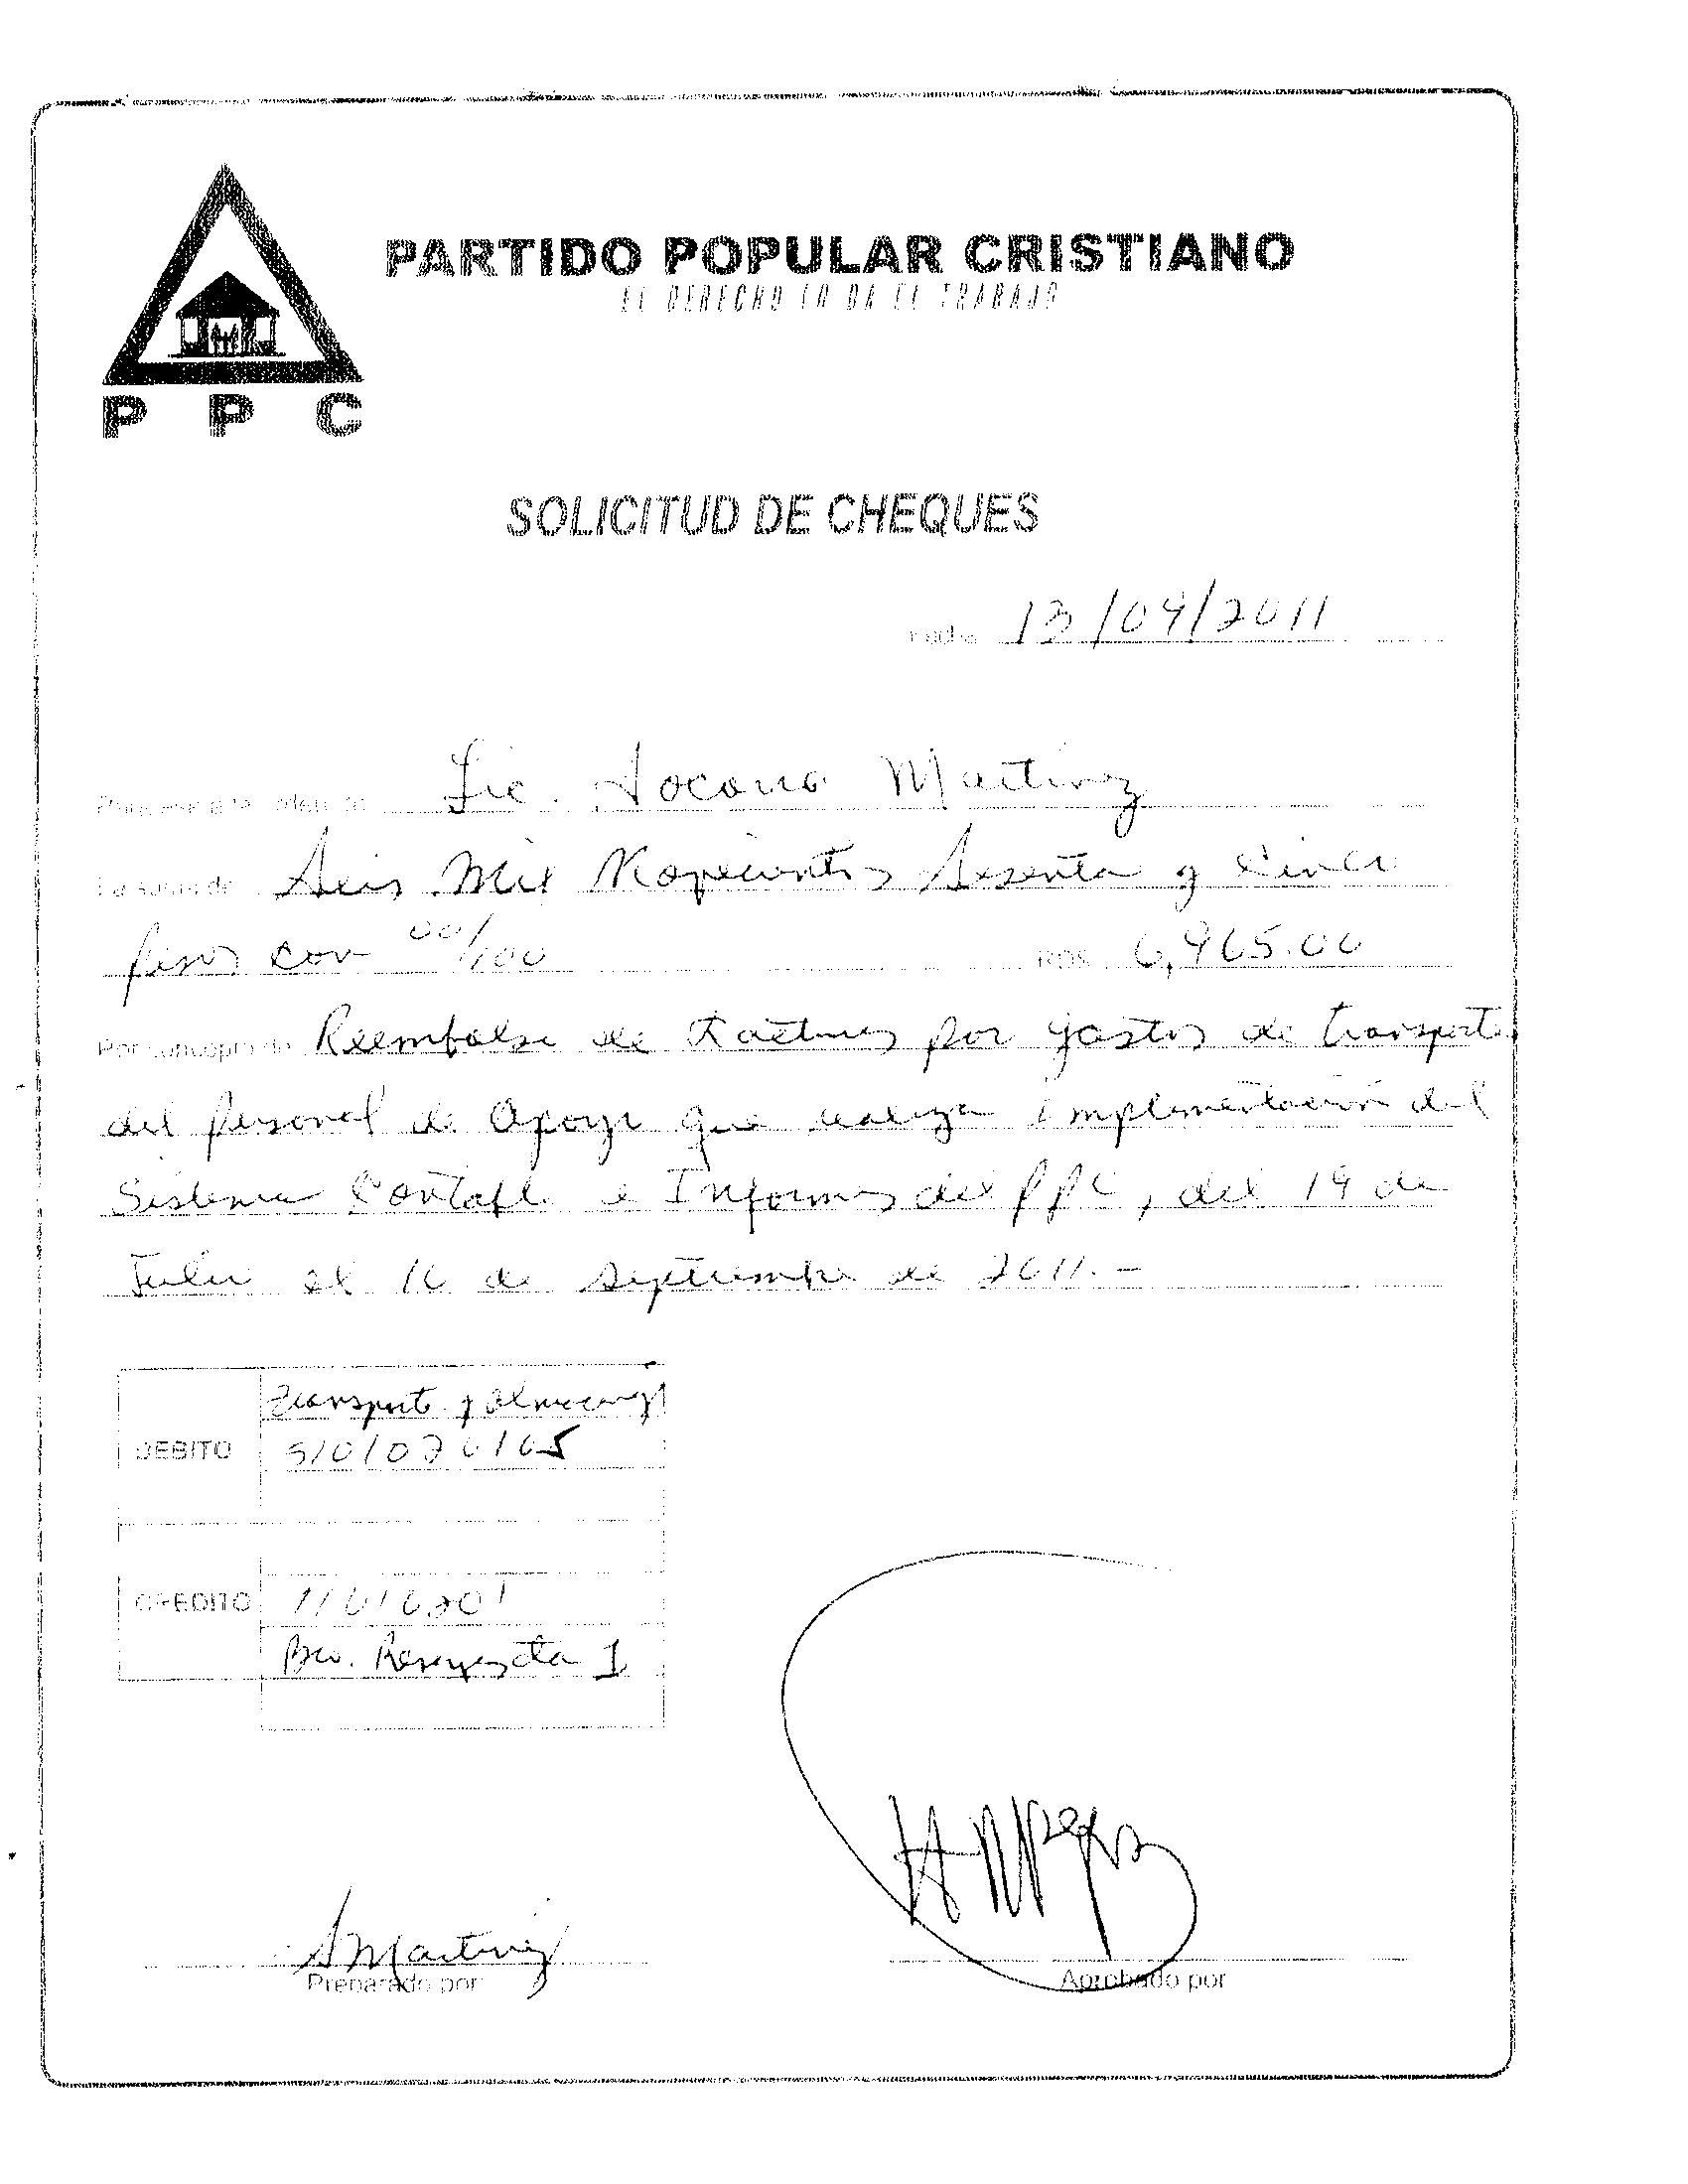 PARTIDO POPULAR CRISTIANO
EL DERECHO LO DA EL TRABAJO
P P C
SOLICITUD DE CHEQUES
Fecha 13/09/2011
Páguese a la orden de Lic. Socorro Martinez
La suma de Seis Mil Novecientos Sesenta y Cinco
pesos con 00/100 RD$ 6,965.00
Por concepto de Reembolso de Facturas por gastos de transporte
del personal de Apoyo que realiza implementacion del
Sistema Contable e Informes del PPC, del 19 de
Julio al 16 de Septiembre de 2011.-
Transporte y
DEBITO 5101020105
CREDITO 11010201
Bco. Reservas cta 1
SMartinez
Preparado por
Aprobado por